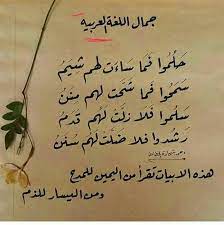 جمال اللغة العربيه
حَلُمُوا فَمَا سَاءَت لَهُم شِيَمُ
سَمَحُوا فَمَا شَحَّت لَهُم مِنَنُ
سَلِمُوا فَلَا زَلَّت لَهُم قَدَمُ
رَشَدُوا فَلَا ضَلَّت لَهُم سُنَنُ
هذه الابيات تقرأ من اليمين للمدح
ومن اليسار للذم